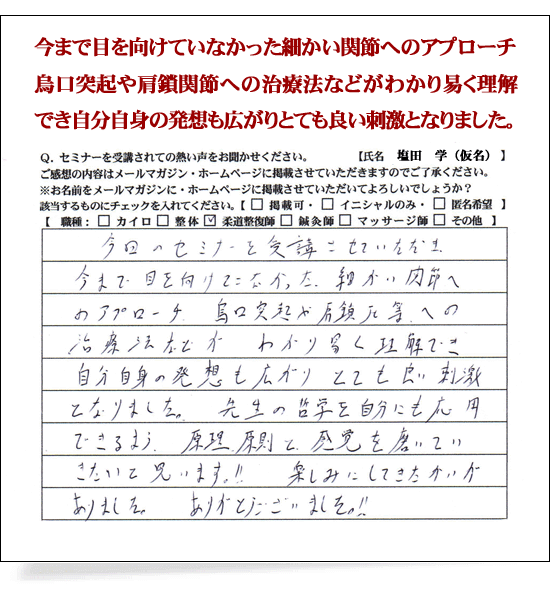 今まで目を向けていなかった細かい関節へのアプローチ
烏口突起や肩鎖関節への治療法などがわかり易く理解
でき自分自身の発想も広がりとても良い刺激となりました。
Q．セミナーを受講されての熱い声をお聞かせください。 【氏名 塩田 学（仮名） 】
ご感想の内容はメールマガジン・ホームページに掲載させていただきますのでご了承ください。
※お名前をメールマガジンに・ホームページに掲載させていただいてよろしいでしょうか？
該当するものにチェックを入れてください。【 □ 掲載可・ □ イニシャルのみ・ □ 匿名希望 】
【 職種： □ カイロ □ 整体 ☑ 柔道整復師 □ 鍼灸師 □ マッサージ師 □ その他 】
今回のセミナーを受講させていただき
今まで目を向けてこなかった、細かい関節へ
のアプローチ 烏口突起や肩鎖元等への
治療法などが わかり易く理解でき
自分自身の発想も広がり とても良い刺激
となりました。 先生の哲学を自分にも応用
できるよう 原理、原則と、感覚を磨いてい
きたいと思います!! 楽しみにしてきたかいが
ありました。 ありがとうございました。!!